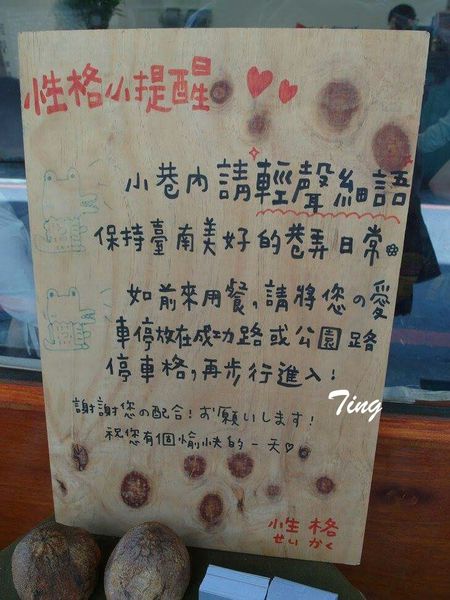 性格小提醒
小巷內請輕聲細語
保持臺南美好的巷弄日常
如前來用餐,請將您の愛
車停放在成功路或公園路
停車格,再步行進入!
謝謝您の配合!お願いします!
祝您有個愉快的一天
Ting
性格
せいかく